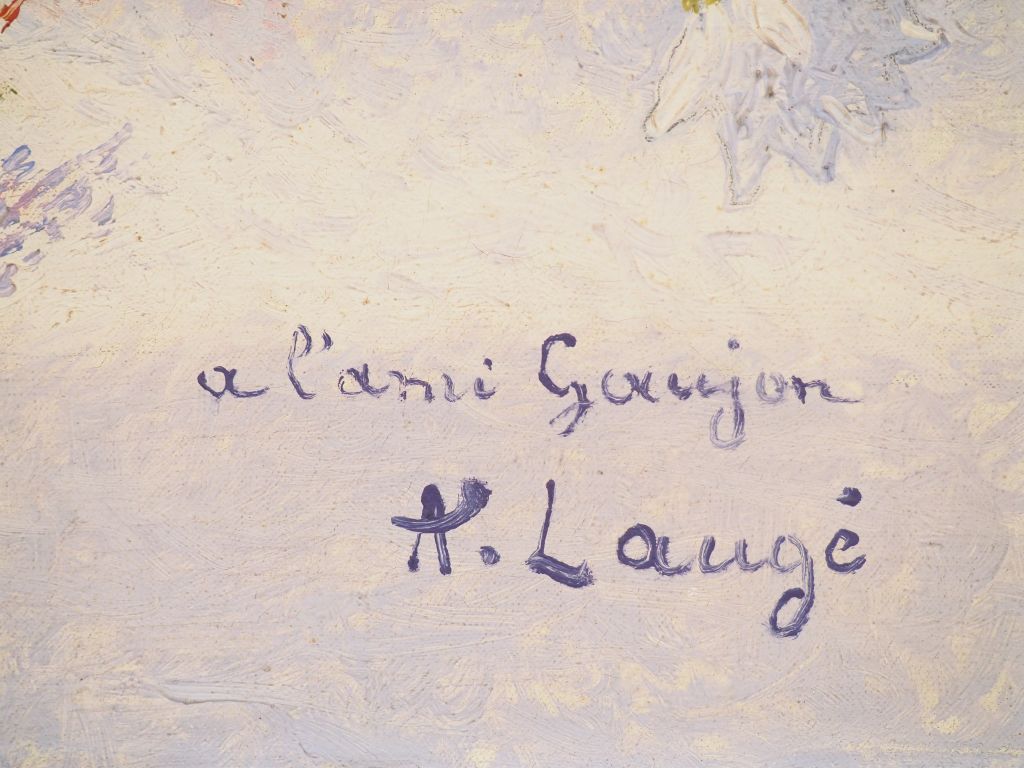 a l'ami Goujon
A. Laugé